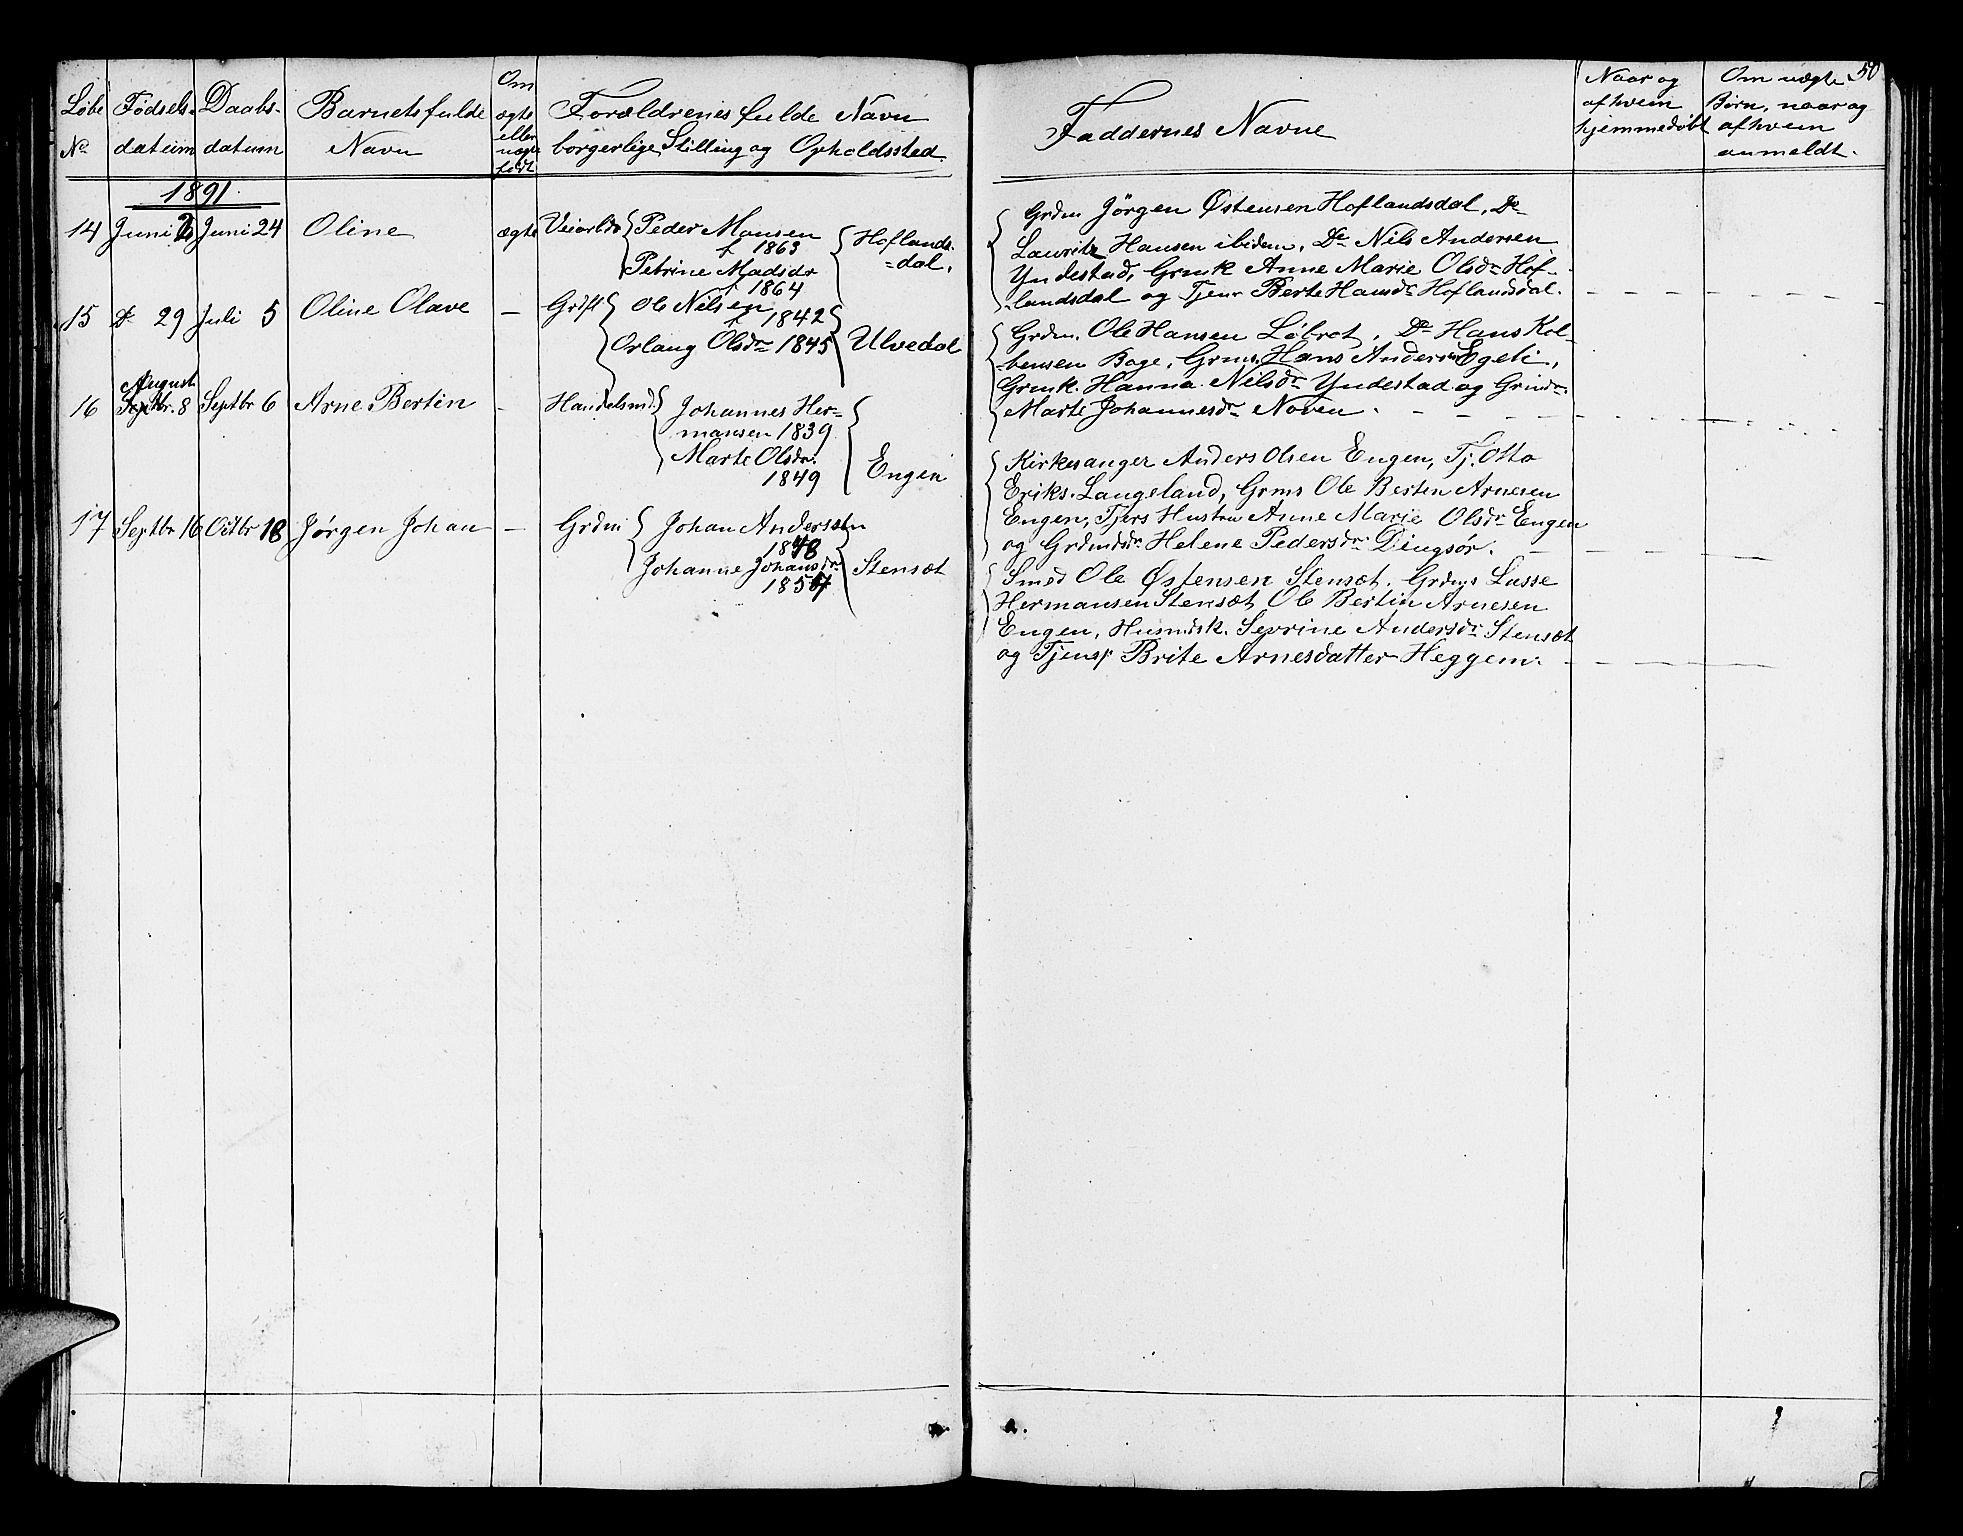 50
Løbe
No
Fødsels-
datum
Daabs-
datum
Barnets fulde
Navn
Om
ægte
eller
uægte
født
Forældrenes fulde Navn
borgerlige Stilling og Opholdssted
Faddernes Navne
Naar og
af hvem
hjemmedøbt
Om uægte
Børn, naar og
af hvem
anmeldt.
1891.
14 Juni Juni 24 Oline ægte
Peder Monsen
f 1863
Petrine Madsdr
f 1864
Hoflands-
=dal.
Grdm Jörgen Østensen Hoflandsdal, Do
Lauritz Hansen ibidem, Do Nils Andersen
Yndestad, Grmk Anne Marie Olsdr Hof-
landsdal og Tjenr Berte Hansdr Hoflandsdal.
15 Do 29 Juli 5 Oline Olave —
Ole Nilsen
f 1842
Orlaug Olsdr 1845
Ulvedal
Grdm. Ole Hansen Löbret, Do Hans Kol-
bensen Boge, Grms. Hans Andersen Egeli,
Grmk. Hanna Nilsdr Yndestad og Grmdr.
Marte Johannesdr Noven.
16 August
Septbr. 8 Septbr 6 Arne Bertin - Handelsmd.
Johannes Her=
mansen 1839
Marte Olsdr.
1849
Engen
Kirkesanger Anders Olsen Engen, Tj. Otto
Eriks. Langeland, Grms Ole Bertin Arnesen
Engen, Tjers Hustru Anne Marie Olsdr Engen
og Grdmdsdr Helene Pedersdr Dingsör.
17 Septbr 16 Octbr 18 Jørgen Johan — Grdm
Johan Andersen
1848
Johanne Johansdr
1857
Stensæt
Smed Ole Østensen Stensæt, Grdms Lasse
Hermansen Stensæt, Ole Bertin Arnesen
Engen, Husmdsk. Sevrine Andersdr Stensæt
og Tjensp Brite Arnesdatter Heggem.